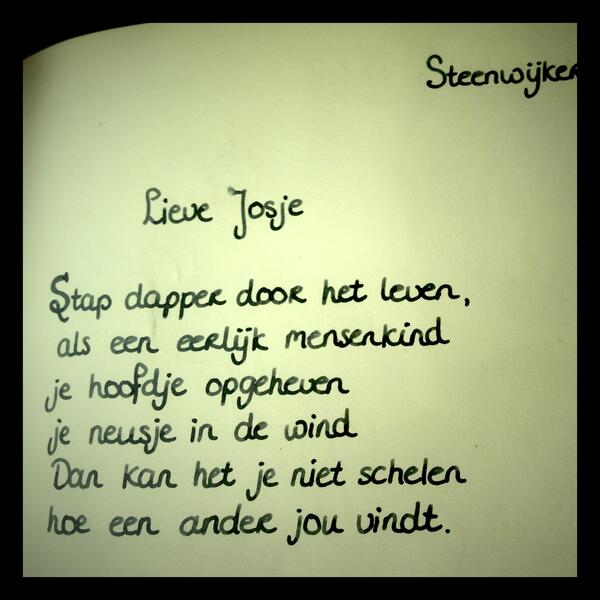 Steenwijker
Lieve Josje
Stap dapper door het leven,
als een eerlijk mensenkind
je hoofdje opgeheven
je neusje in de wind
Dan kan het je niet schelen
hoe een ander jou vindt.